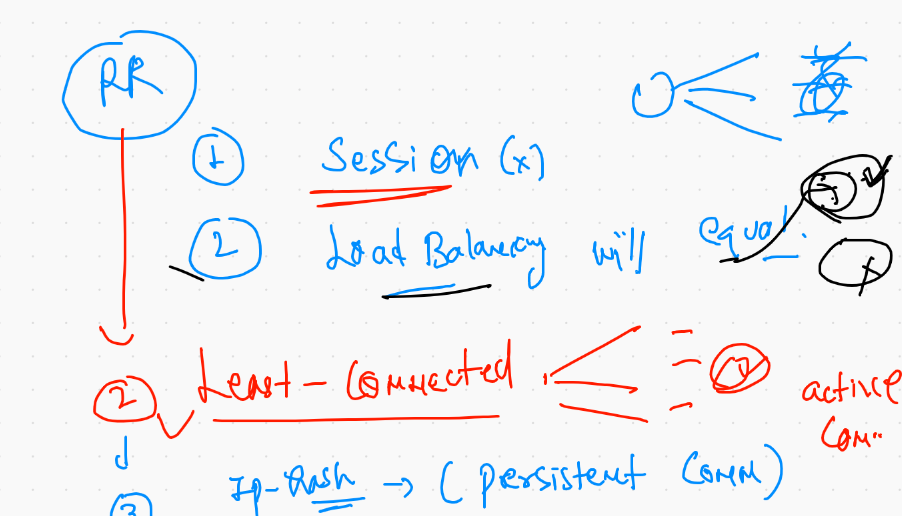 RR
1 Session (x)
2 Load Balancing will equal.
2 Least-Connected
active
Conn..
Ip-Hash → (persistent Conn)
3